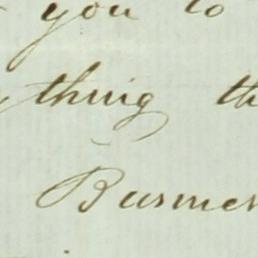 you to
thing th
Busines